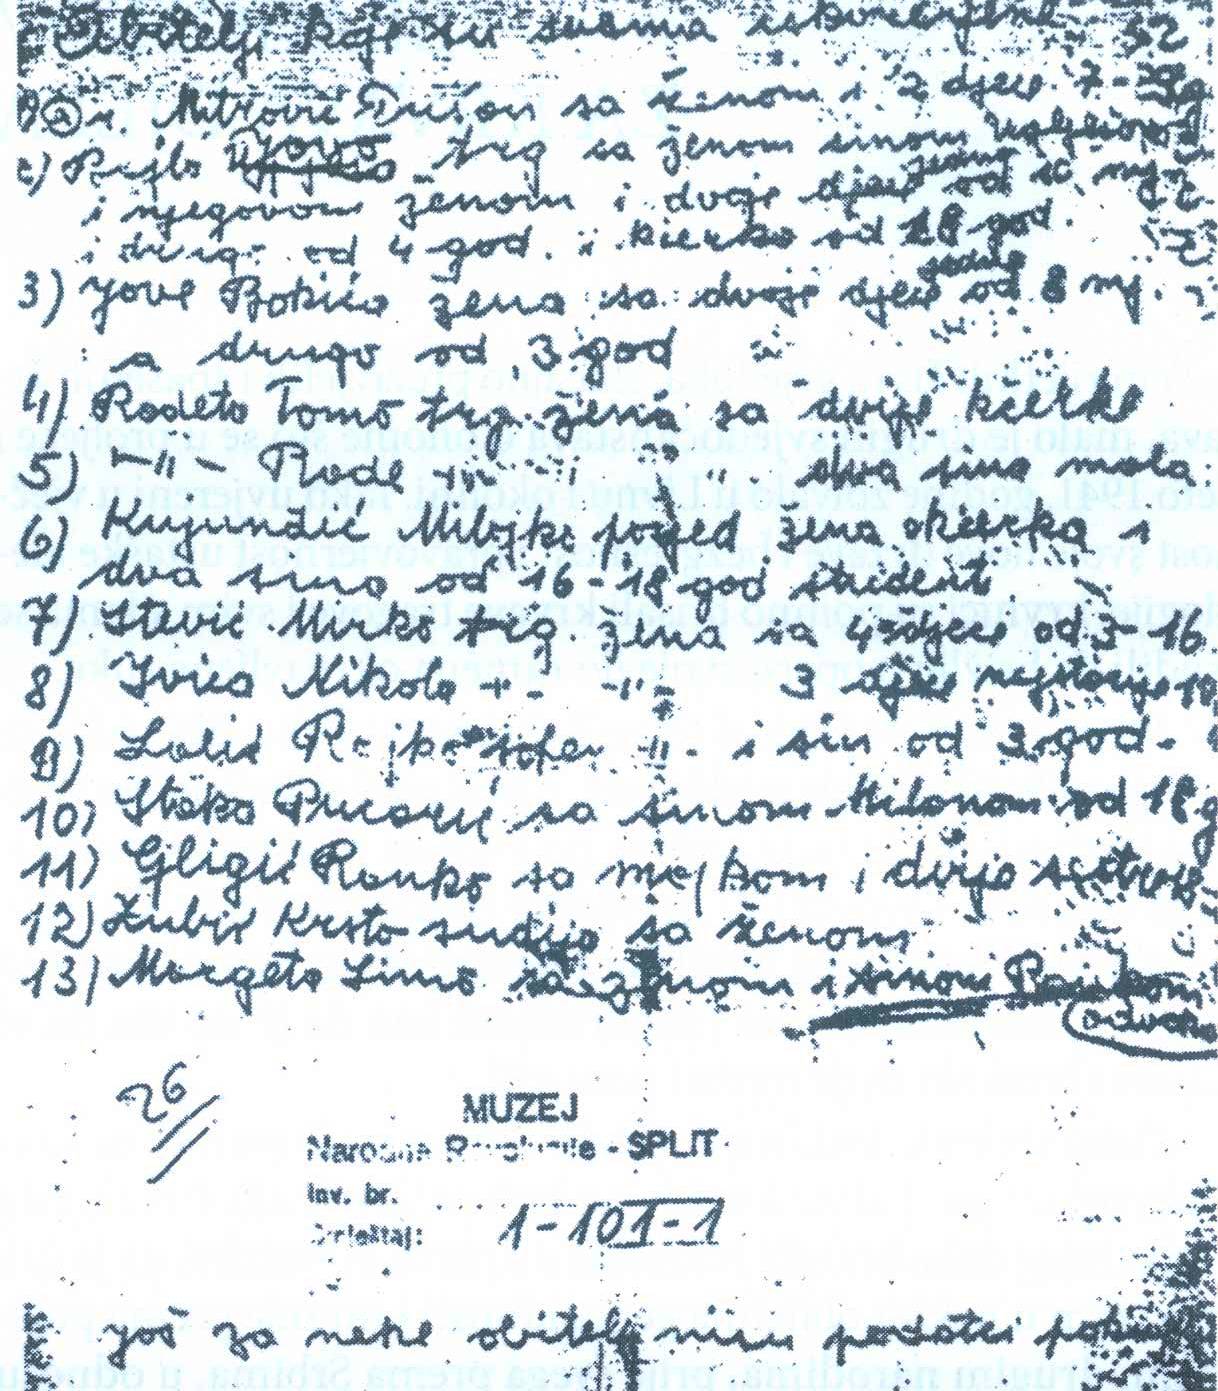 Obitelji koje su
1) Mitrović Dušan sa ženom i 2 djece 7-
2) Rajko Jovo trg sa ženom sinom
i njegovom ženom i dvoje djece jedno od 10 mj
i drugo od 4 god. i kćerko od 18 god
3) Jove Bokića žena sa dvoje djece jedno od 8 mj.
a drugo od 3 god
4) Radeta Tomo trg. žena sa dvije kćerke
5) -"- Rade " " " dva sina mala
6) Kujundić Milojko posjed žena kćerka i
dva sina od 16-18 god student
7) Stević Mirko trg. žena sa 4 djece od 5-16
8) Ivića Nikola -"- 3 djece najstarije
9) Lalić Rajko šofer -"- i sin od 3 god.
10) Staka Pucarić sa sinom Milanom od 18 g
11) Gligić Ranko sa majkom i dvije sestre
12) Zubić Krsto sudija sa ženom
13) Margeta Simo sa ženom i sinom Rankom
26
MUZEJ
Narodne Revolucije - SPLIT
Inv. br.
Smještaj: 1-101-1
još za neke obitelji podatci